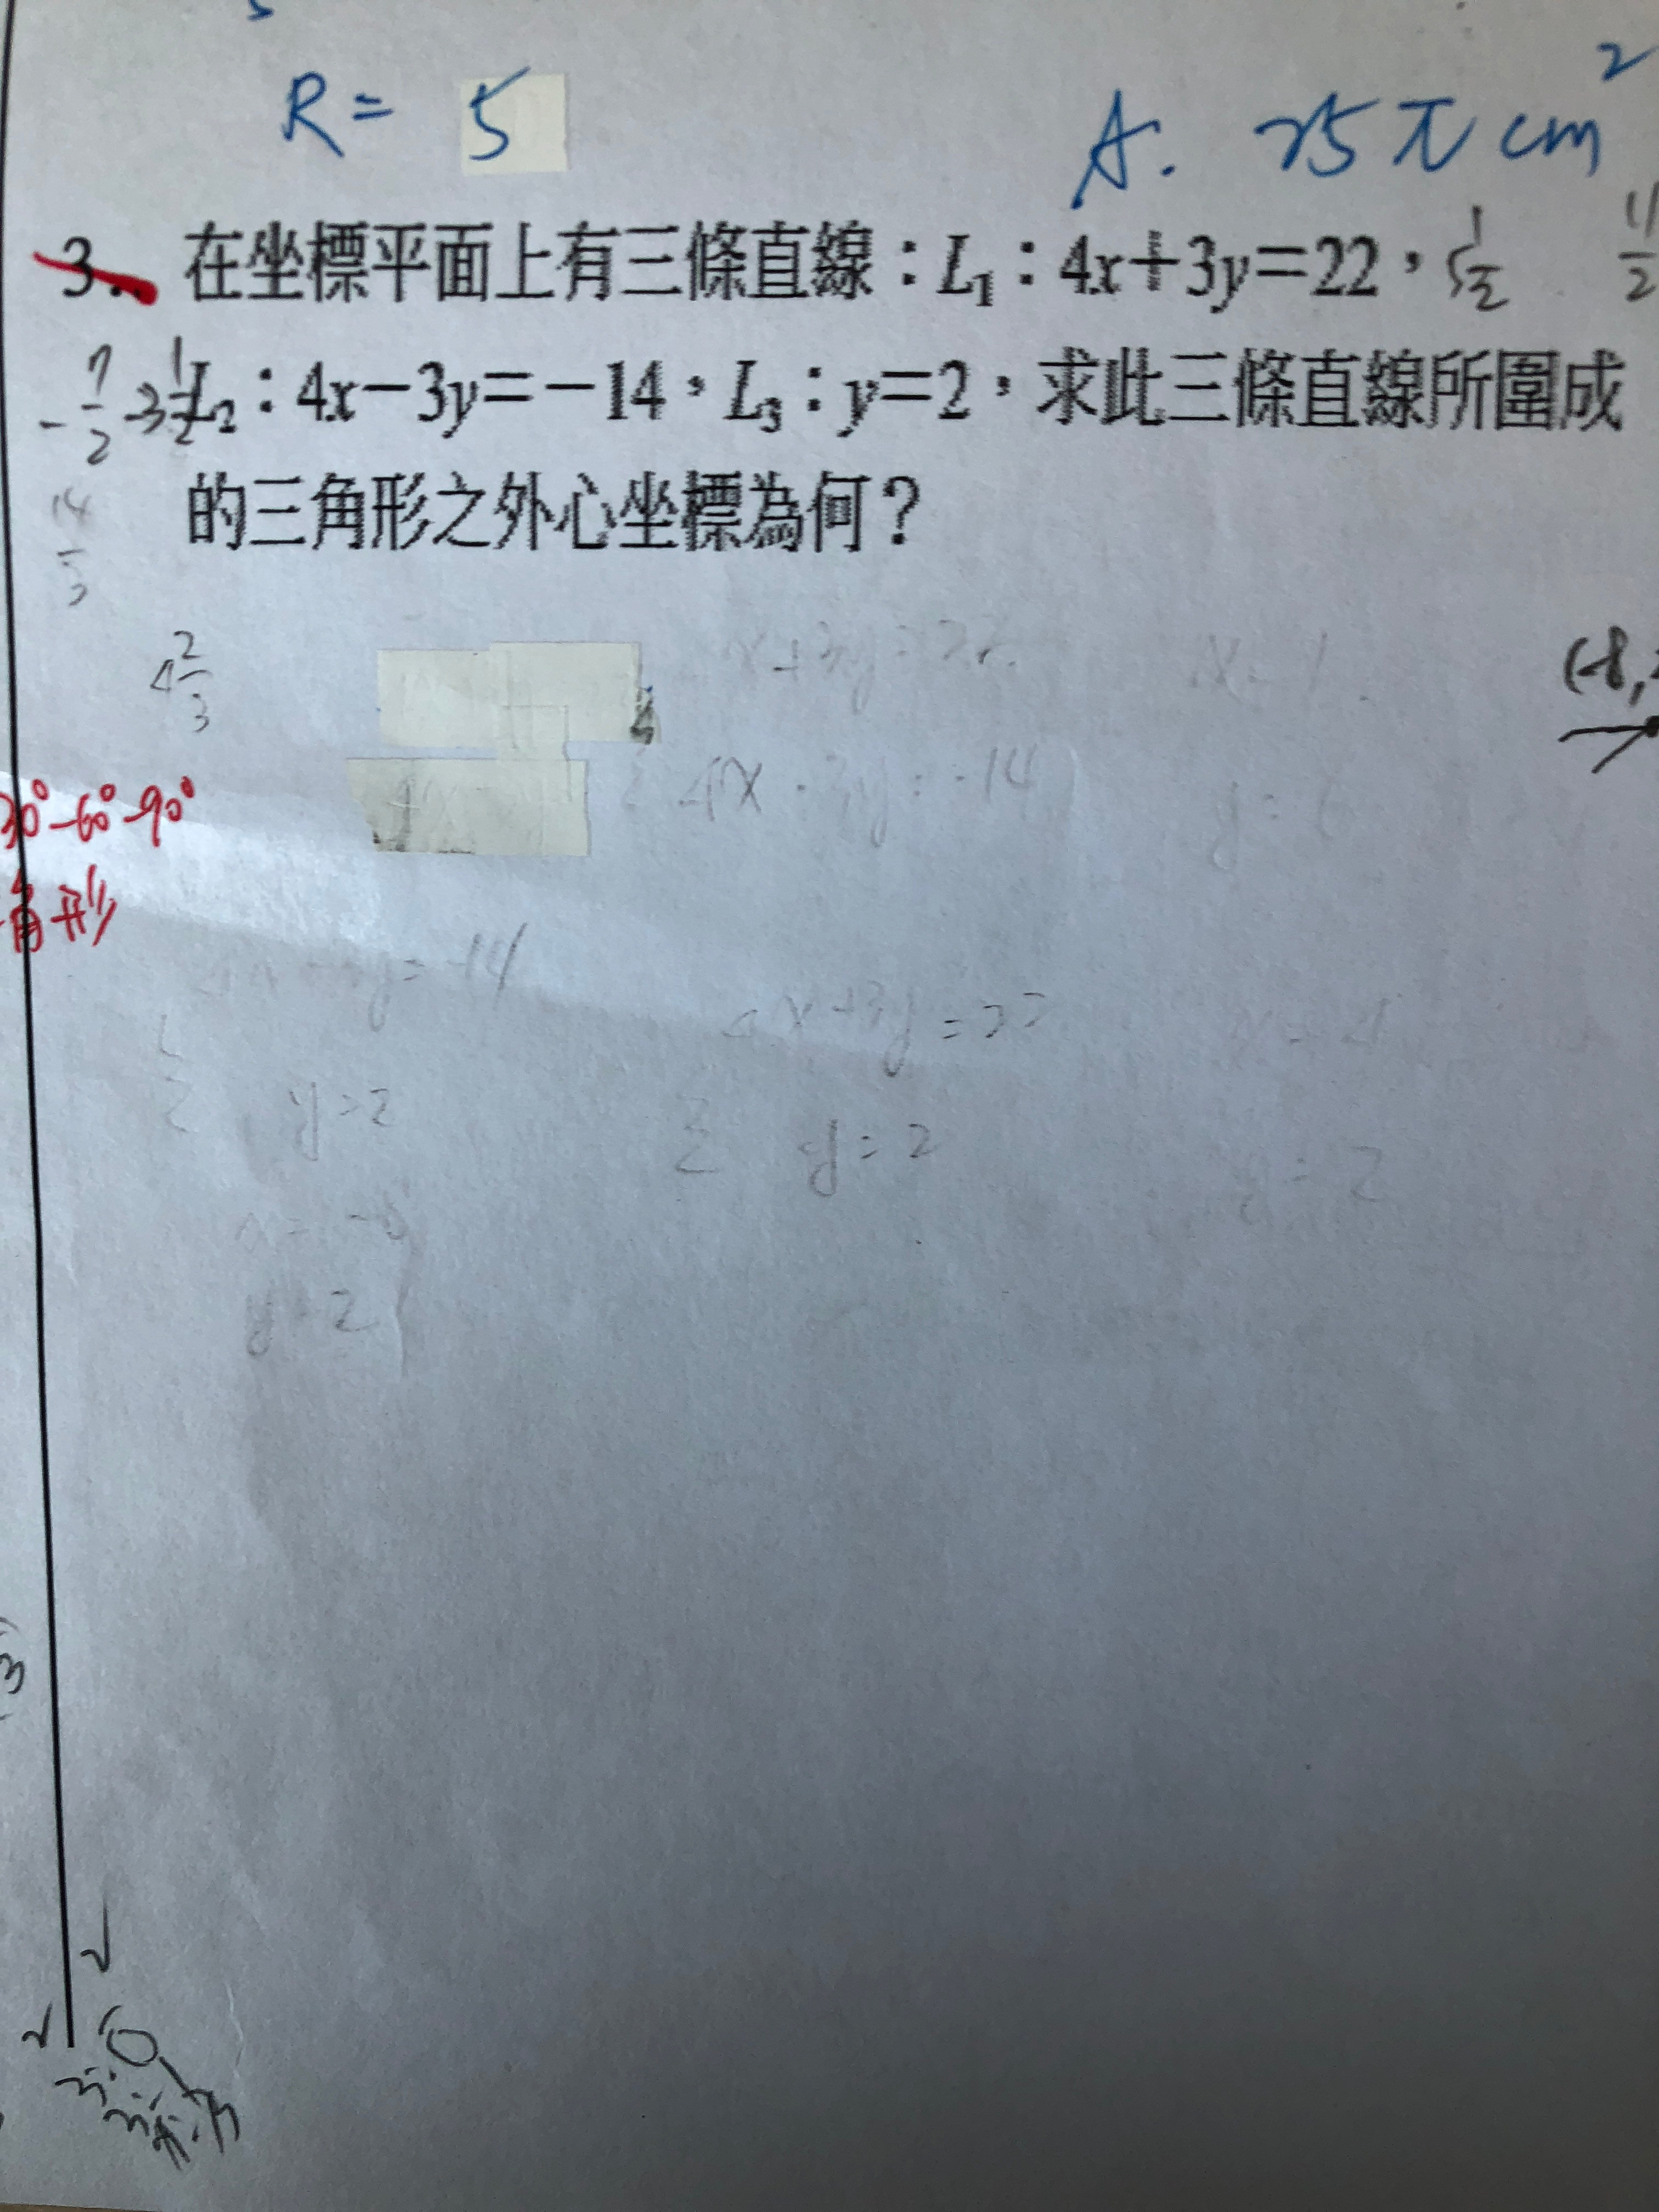 R = 5
A. 25π cm²
3. 在坐標平面上有三條直線：L₁：4x＋3y＝22， 5 1/2 11/2
-7/2 -3 1/2 L₂：4x－3y＝－14，L₃：y＝2，求此三條直線所圍成
的三角形之外心坐標為何？
14/3
4 2/3
x+3y=22
x=1
(-8,
4x-3y=-14
y=6
30°-60°-90°
角形
y=-14
4x+3y=22
x=4
y=2
y=2
y=2
y=2
3